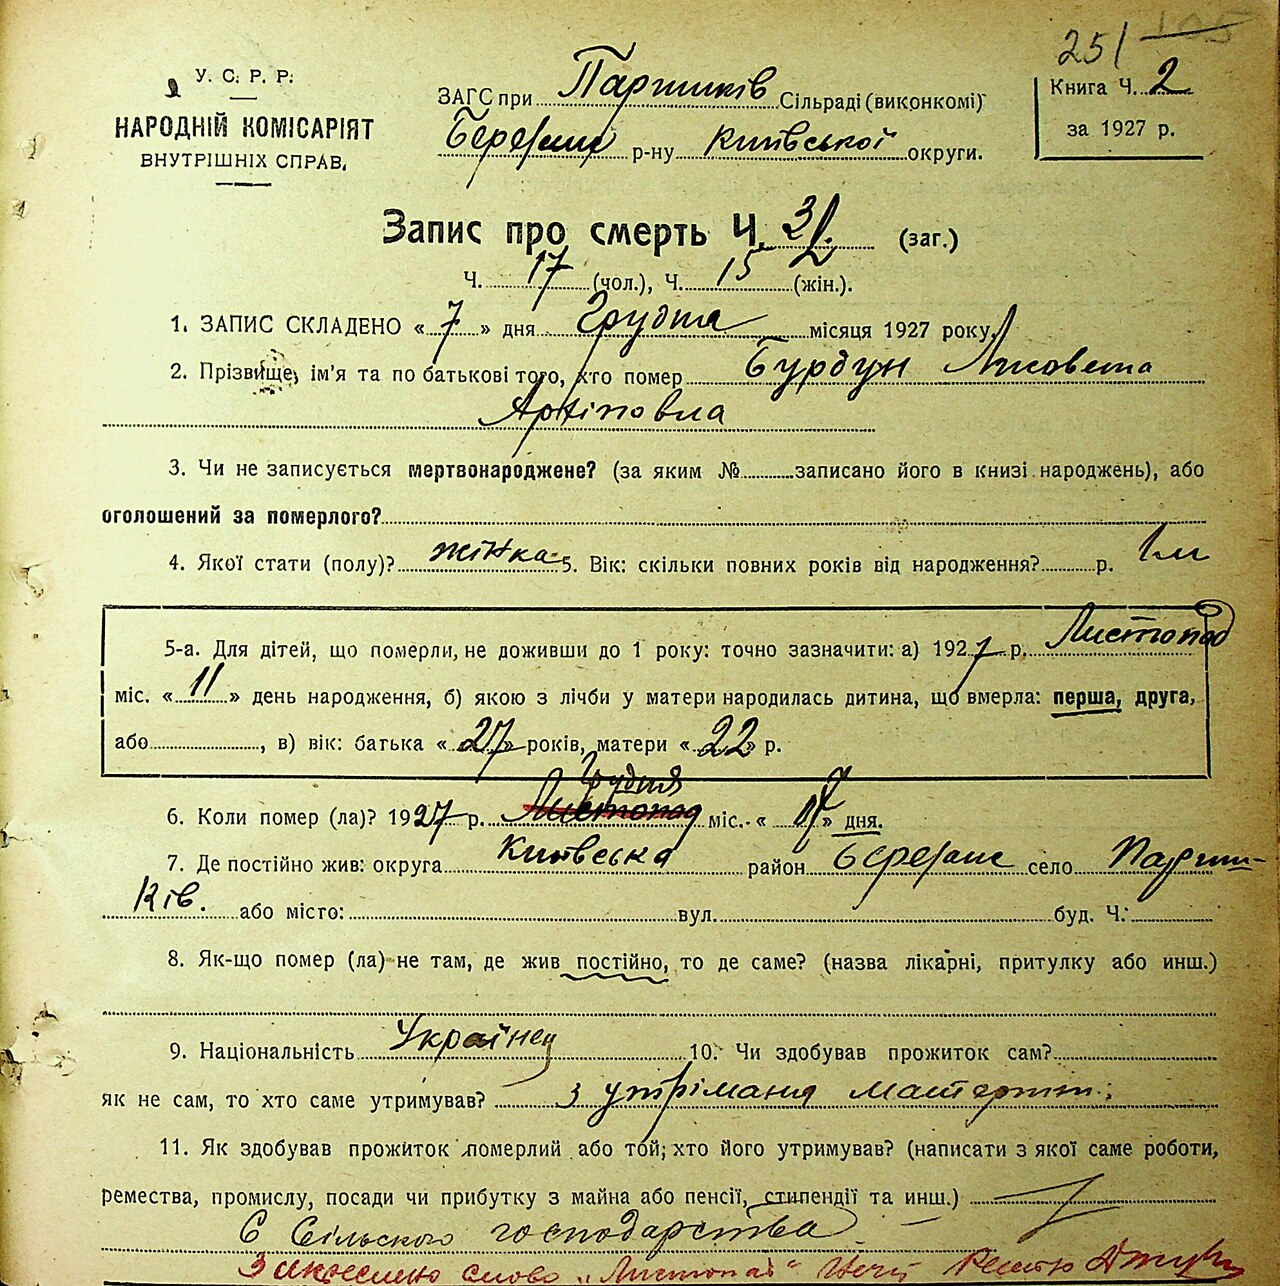 251 105
У. С. Р. Р.
НАРОДНІЙ КОМІСАРІЯТ
ВНУТРІШНІХ СПРАВ.
ЗАГС при Паришків Сільраді (виконкомі)
р-ну Київської округи.
Книга Ч. 2
за 1927 р.
Запис про смерть Ч. 32 (заг.)
Ч. 17 (чол.), Ч. 15 (жін.).
1. ЗАПИС СКЛАДЕНО « 7 » дня Грудня місяця 1927 року.
2. Прізвище, ім'я та по батькові того, хто помер Бурдун Лисовета
Архіповна
3. Чи не записується мертвонароджене? (за яким № записано його в книзі народжень), або
оголошений за померлого?
4. Якої стати (полу)? жінка 5. Вік: скільки повних років від народження? р. 1м
5-а. Для дітей, що померли, не доживши до 1 року: точно зазначити: а) 1927 р. Листопад
міс. « 11 » день народження, б) якою з лічби у матери народилась дитина, що вмерла: перша, друга,
або , в) вік: батька « 27 » років, матери « 22 » р.
Грудня
6. Коли помер (ла)? 1927 р. Листопад міс. « » дня.
7. Де постійно жив: округа Київська район Березан село Париш-
ків. або місто: вул. буд. Ч.
8. Як-що помер (ла) не там, де жив постійно, то де саме? (назва лікарні, притулку або инш.)
9. Національність Українец 10. Чи здобував прожиток сам?
як не сам, то хто саме утримував? з утріманя
11. Як здобував прожиток померлий або той, хто його утримував? (написати з якої саме роботи,
ремества, промислу, посади чи прибутку з майна або пенсії, стипендії та инш.)
С Сільского господарства
Закреслено слово „Листопад"